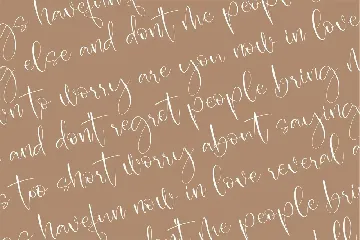 s havefun now in love
else and dont the people
n to worry are you now in love
and dont regret people bring
s too short worry about saying
s havefun now in love reveral
dont the people bri